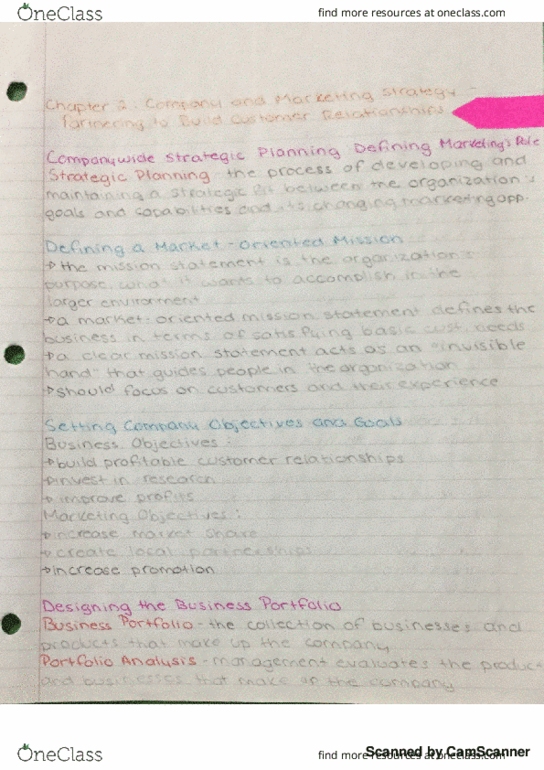 OneClass
find more resources at oneclass.com
Chapter 2: Company and Marketing Strategy
Partnering to Build Customer Relationships
Companywide Strategic Planning Defining Marketing's Role
Strategic Planning - the process of developing and
maintaining a strategic fit between the organization's
goals and capabilities and its changing marketing opp.
Defining a Market-Oriented Mission
→ the mission statement is the organization's
purpose, what it wants to accomplish in the
larger environment
→ a market-oriented mission statement defines the
business in terms of satisfying basic cust. needs
→ a clear mission statement acts as an "invisible
hand" that guides people in the organization
→ should focus on customers and their experience
Setting Company Objectives and Goals
Business Objectives:
→ build profitable customer relationships
→ invest in research
→ improve profits
Marketing Objectives:
→ increase market share
→ create local partnerships
→ increase promotion
Designing the Business Portfolio
Business Portfolio - the collection of businesses and
products that make up the company
Portfolio Analysis - management evaluates the product
and businesses that make up the company
OneClass
find more resources at oneclass.com
Scanned by CamScanner